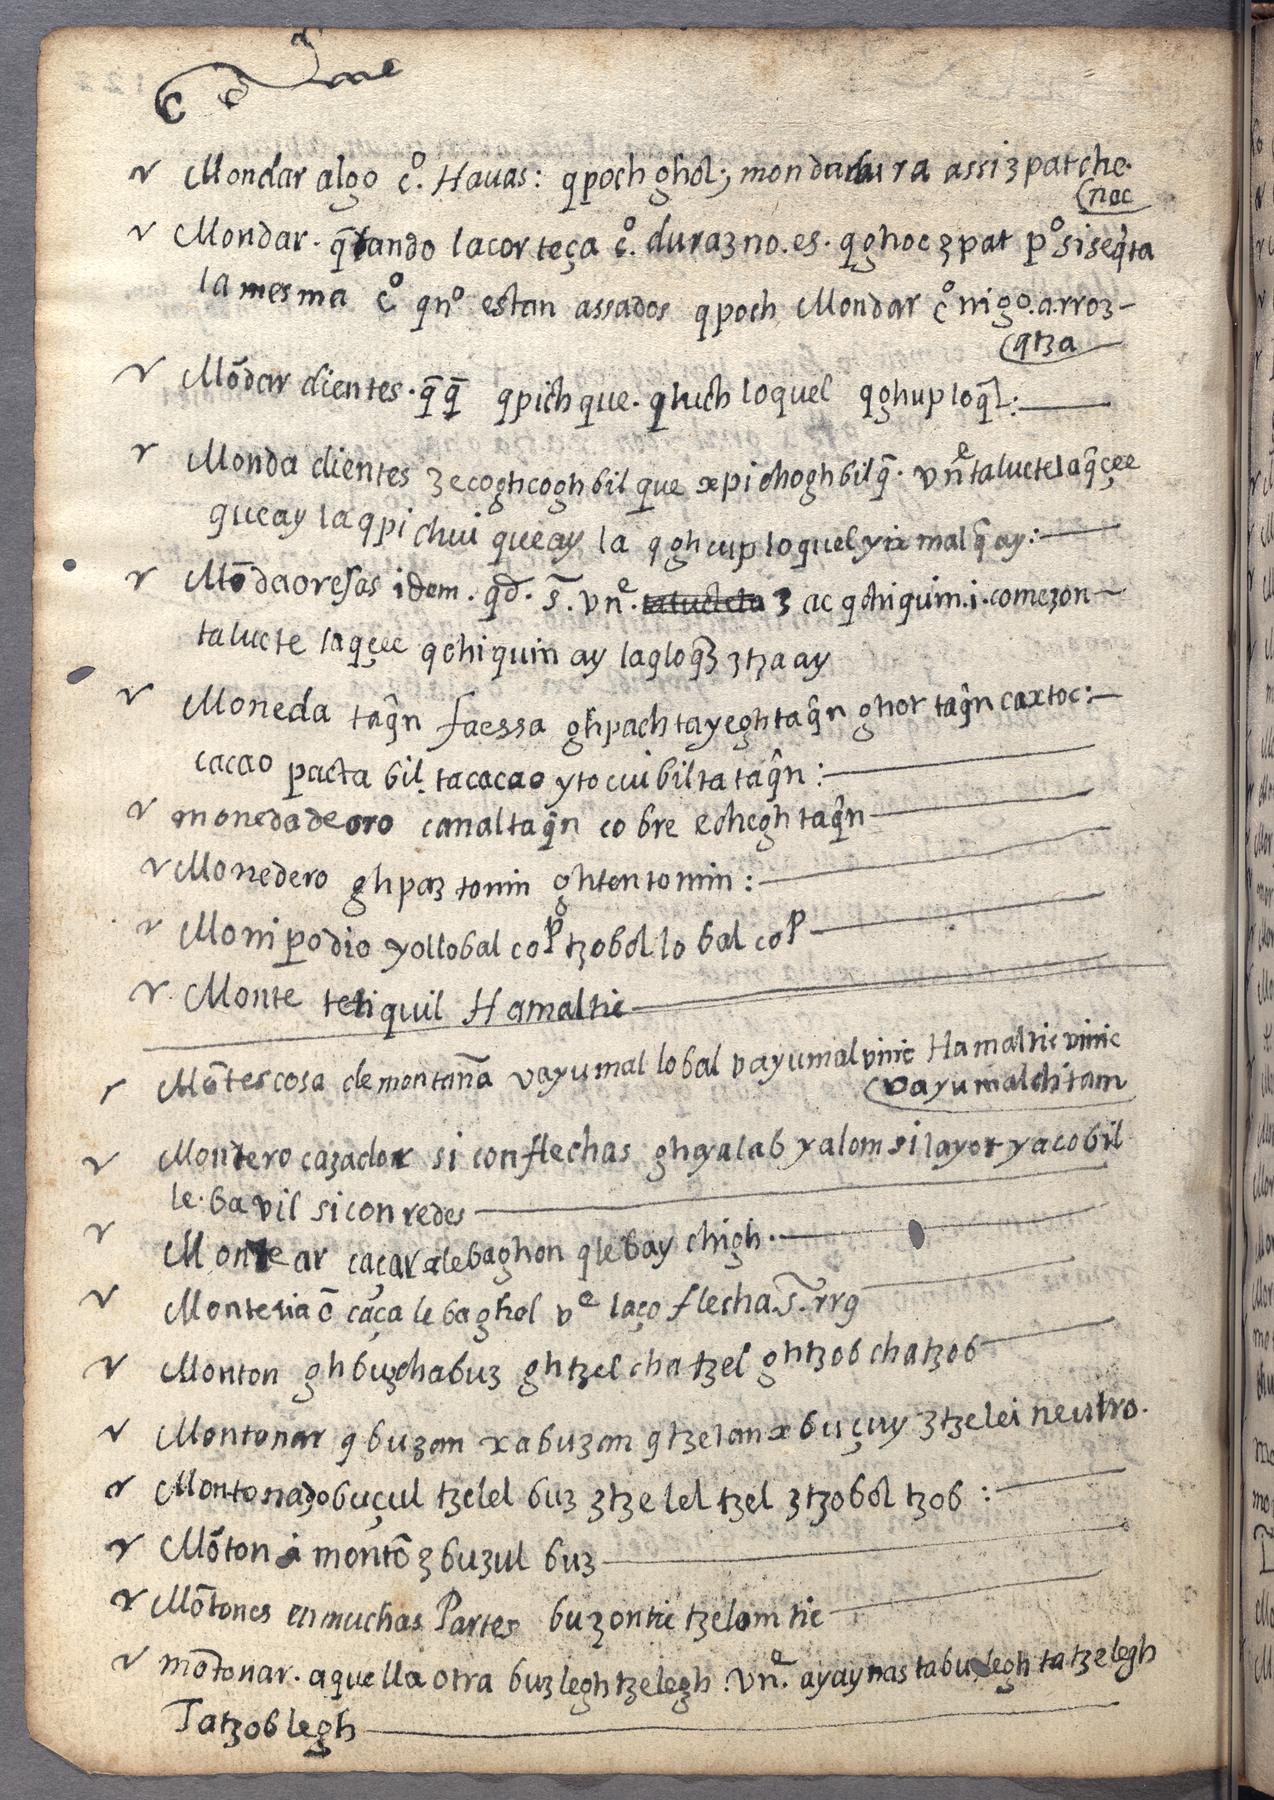 r Mondar algo c̃o. Hauas: qpoch ghol; mondadura assi zpatche.
(nec
r Mondar. q̃tando lacorteça c̃o. durazno. es. qghoc zpat po si seq̃ta
la mesma c̃o qno estan assados qpoch Mondar c̃o nigo. arroz-
(qtza
r Mõdar dientes. q̃q̃ qpich que. qluch loquel qghuploq̃l:
r Monda dientes zecoghcoghbil que xpichoghbilq̃. vñe taluctelaq̃çee
queay laqpichui queay la qghcuploquel yix malq̃ ay:
r Mõdaoresas idem. q̃d. s̃. vne. taluctela z ac qchiquin.i.comezon-
talucte laqçee qchiquin ay laqloq̃z ztzaay
r Moneda taq̃n faessa ghpach tayeghtaq̃n ghor taq̃n caxtoc:-
cacao pactabil. tacacao ytocuibiltataq̃n:
r monedadeoro canaltaq̃n cobre echegh taq̃n
r Monedero ghpaz tomin ghtentomin:
r Monipodio yollobal cop tzobol lobal cop
r. Monte tetiquil Hamaltic
r Mõtes cosa de montaña vayumal lobal vayumal vinic Hamaltic vinic
(vayumalchitam
r Montero cazador si con flechas ghyalab yalom si layor yacobil
le. bavil si con redes
r Montear caçar alebaghon qlebay chigh.
r Monteria õ caça lebaghel ve laço flecha. s̃. rrg
r Monton ghbuzchabuz ghtzel chatzel ghtzob chatzob
r Montonar qbuzan xabuzan qtzelan xbuçuy ztzelei neutro.
r Montonado buçul tzelel buz ztzelel tzel ztzobol tzob:
r Mõton á montõ zbuzul buz
r Mõtones en muchas Partes buzontic tzelomtic
r mõtonar. aquella otra buzlegh tzelegh. vne. ayaynas tabuzlegh tatzelegh
Tatzoblegh